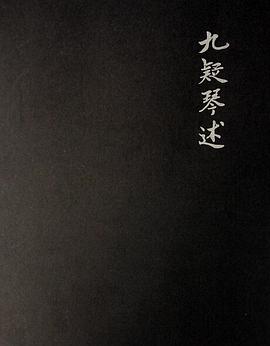 九疑琴述